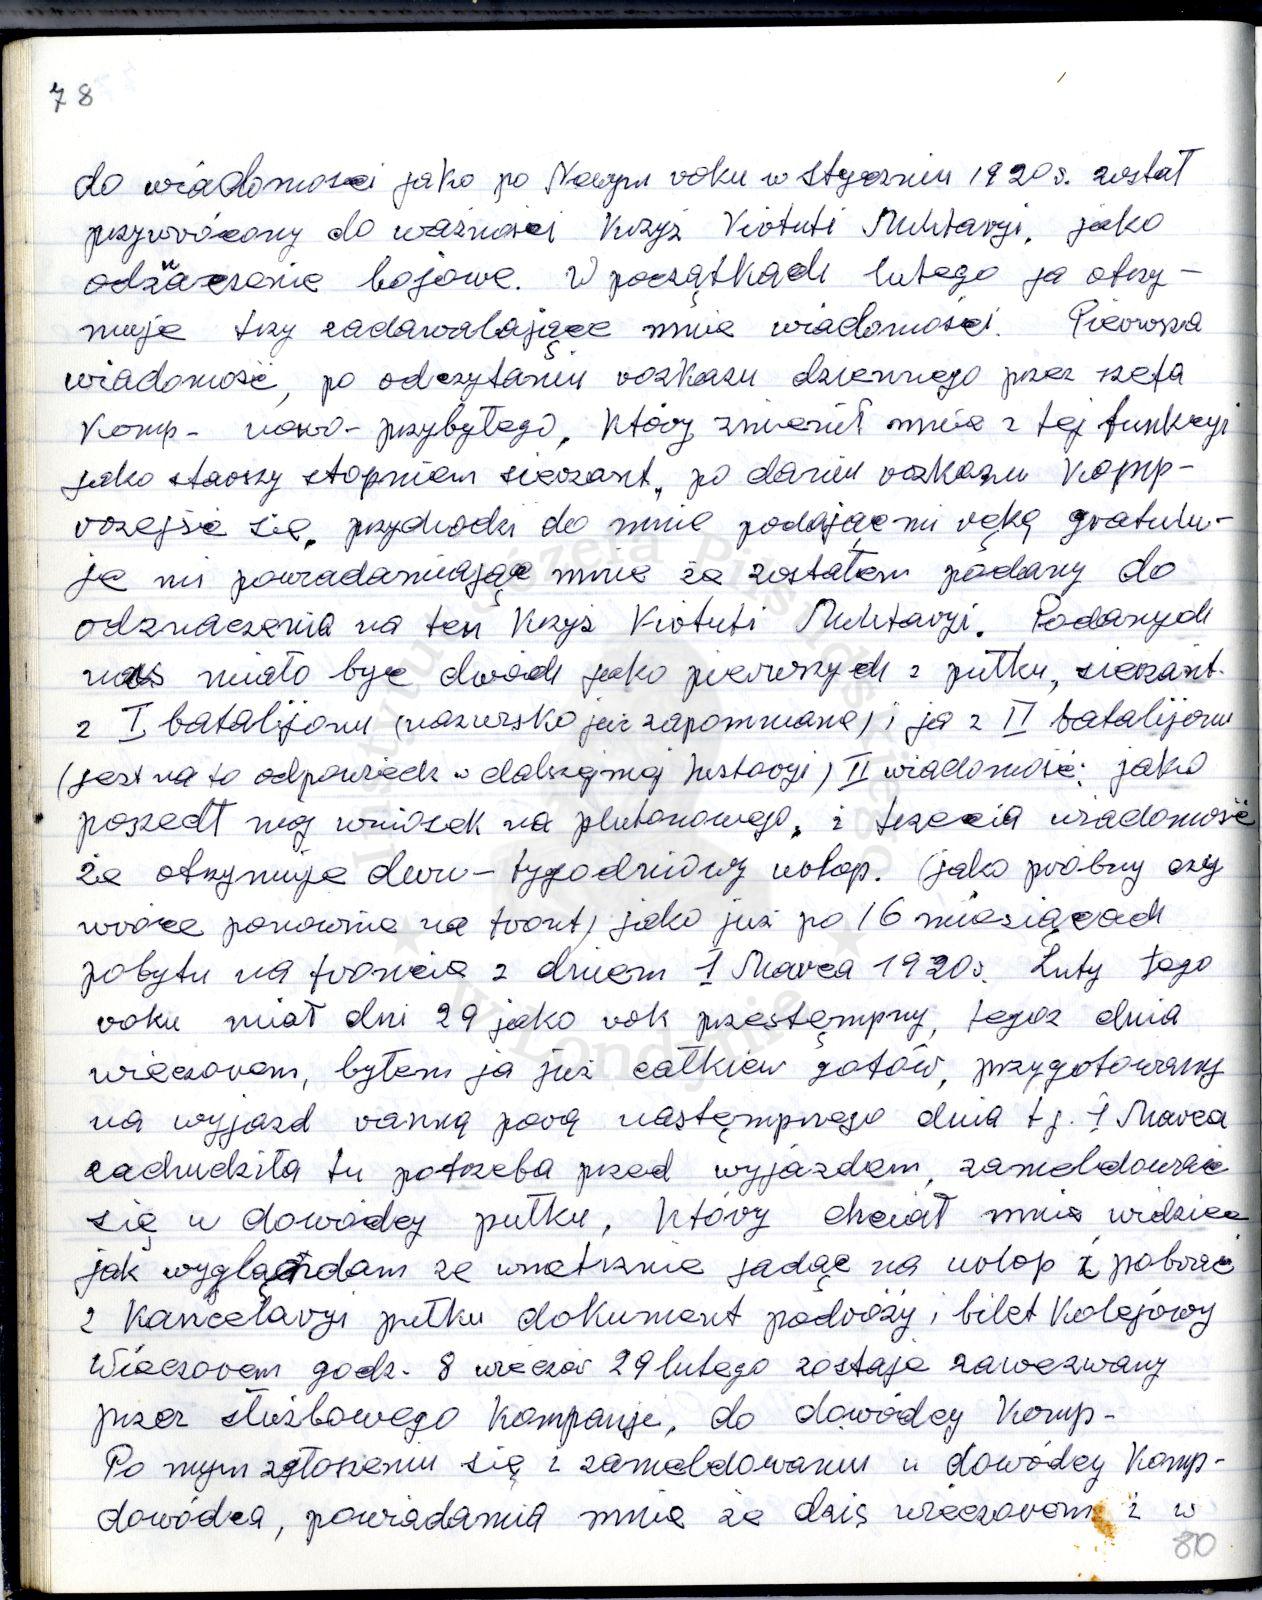 78
do wiadomości jako po Nowym roku w styczniu 1920 r. został
przywrócony do ważności Krzyż Virtuti Militaryi, jako
odznaczenie bojowe. W początkach lutego ja otrzy-
muję trzy zadawalające mnie wiadomości. Pierwsza
wiadomość, po odczytaniu rozkazu dziennego przez szefa
Komp- nowo-przybyłego, który zmienił mnie z tej funkcyi
jako starszy stopniem sierżant, po daniu rozkazu Komp-
rozejść się, przychodzi do mnie podając mi ręką gratulu-
je mi powiadamiając mnie że zostałem podany do
odznaczenia na ten Krzyż Virtuti Militaryi. Podanych
nas miało być dwóch jako pierwszych z pułku, sierżant.
z I batalijonu (nazwisko już zapomniane) i ja z II batalijonu
(jest na to odpowiedz w dalszej mej histaryi) II wiadomość: jako
poszedł mój wniosek na plutonowego, i trzecia wiadomość
że otrzymuję dwu-tygodniowy urlop. (jako próbny czy
wrócę ponownie na front) jako już po 16 miesiącach
pobytu na froncie z dniem 1 Marca 1920 r. Luty tego
roku miał dni 29 jako rok przestęmpny, tegoz dnia
wieczorem, byłem ja już całkiem gotów, przygotowany
na wyjazd ranną porą nastęmpnego dnia t j. 1 Marca
zachodziła tu potrzeba przed wyjazdem, zameldować
się u dowódcy pułku, który chciał mnie widzieć
jak wyglądam ze wnetrznie jadąc na urlop i pobrać
z Kancelaryi pułku dokument podróży i bilet Kolejowy
Wieczorem godz. 8 wieczór 29 lutego zostaję zawezwany
przez służbowego Kompanje, do dowódcy Komp-
Po mym zgłoszeniu się i zameldowaniu u dowódcy Komp-
dowódca, powiadamia mnie że dziś wieczorem i w
80
Instytut Józefa Piłsudskiego w Londynie